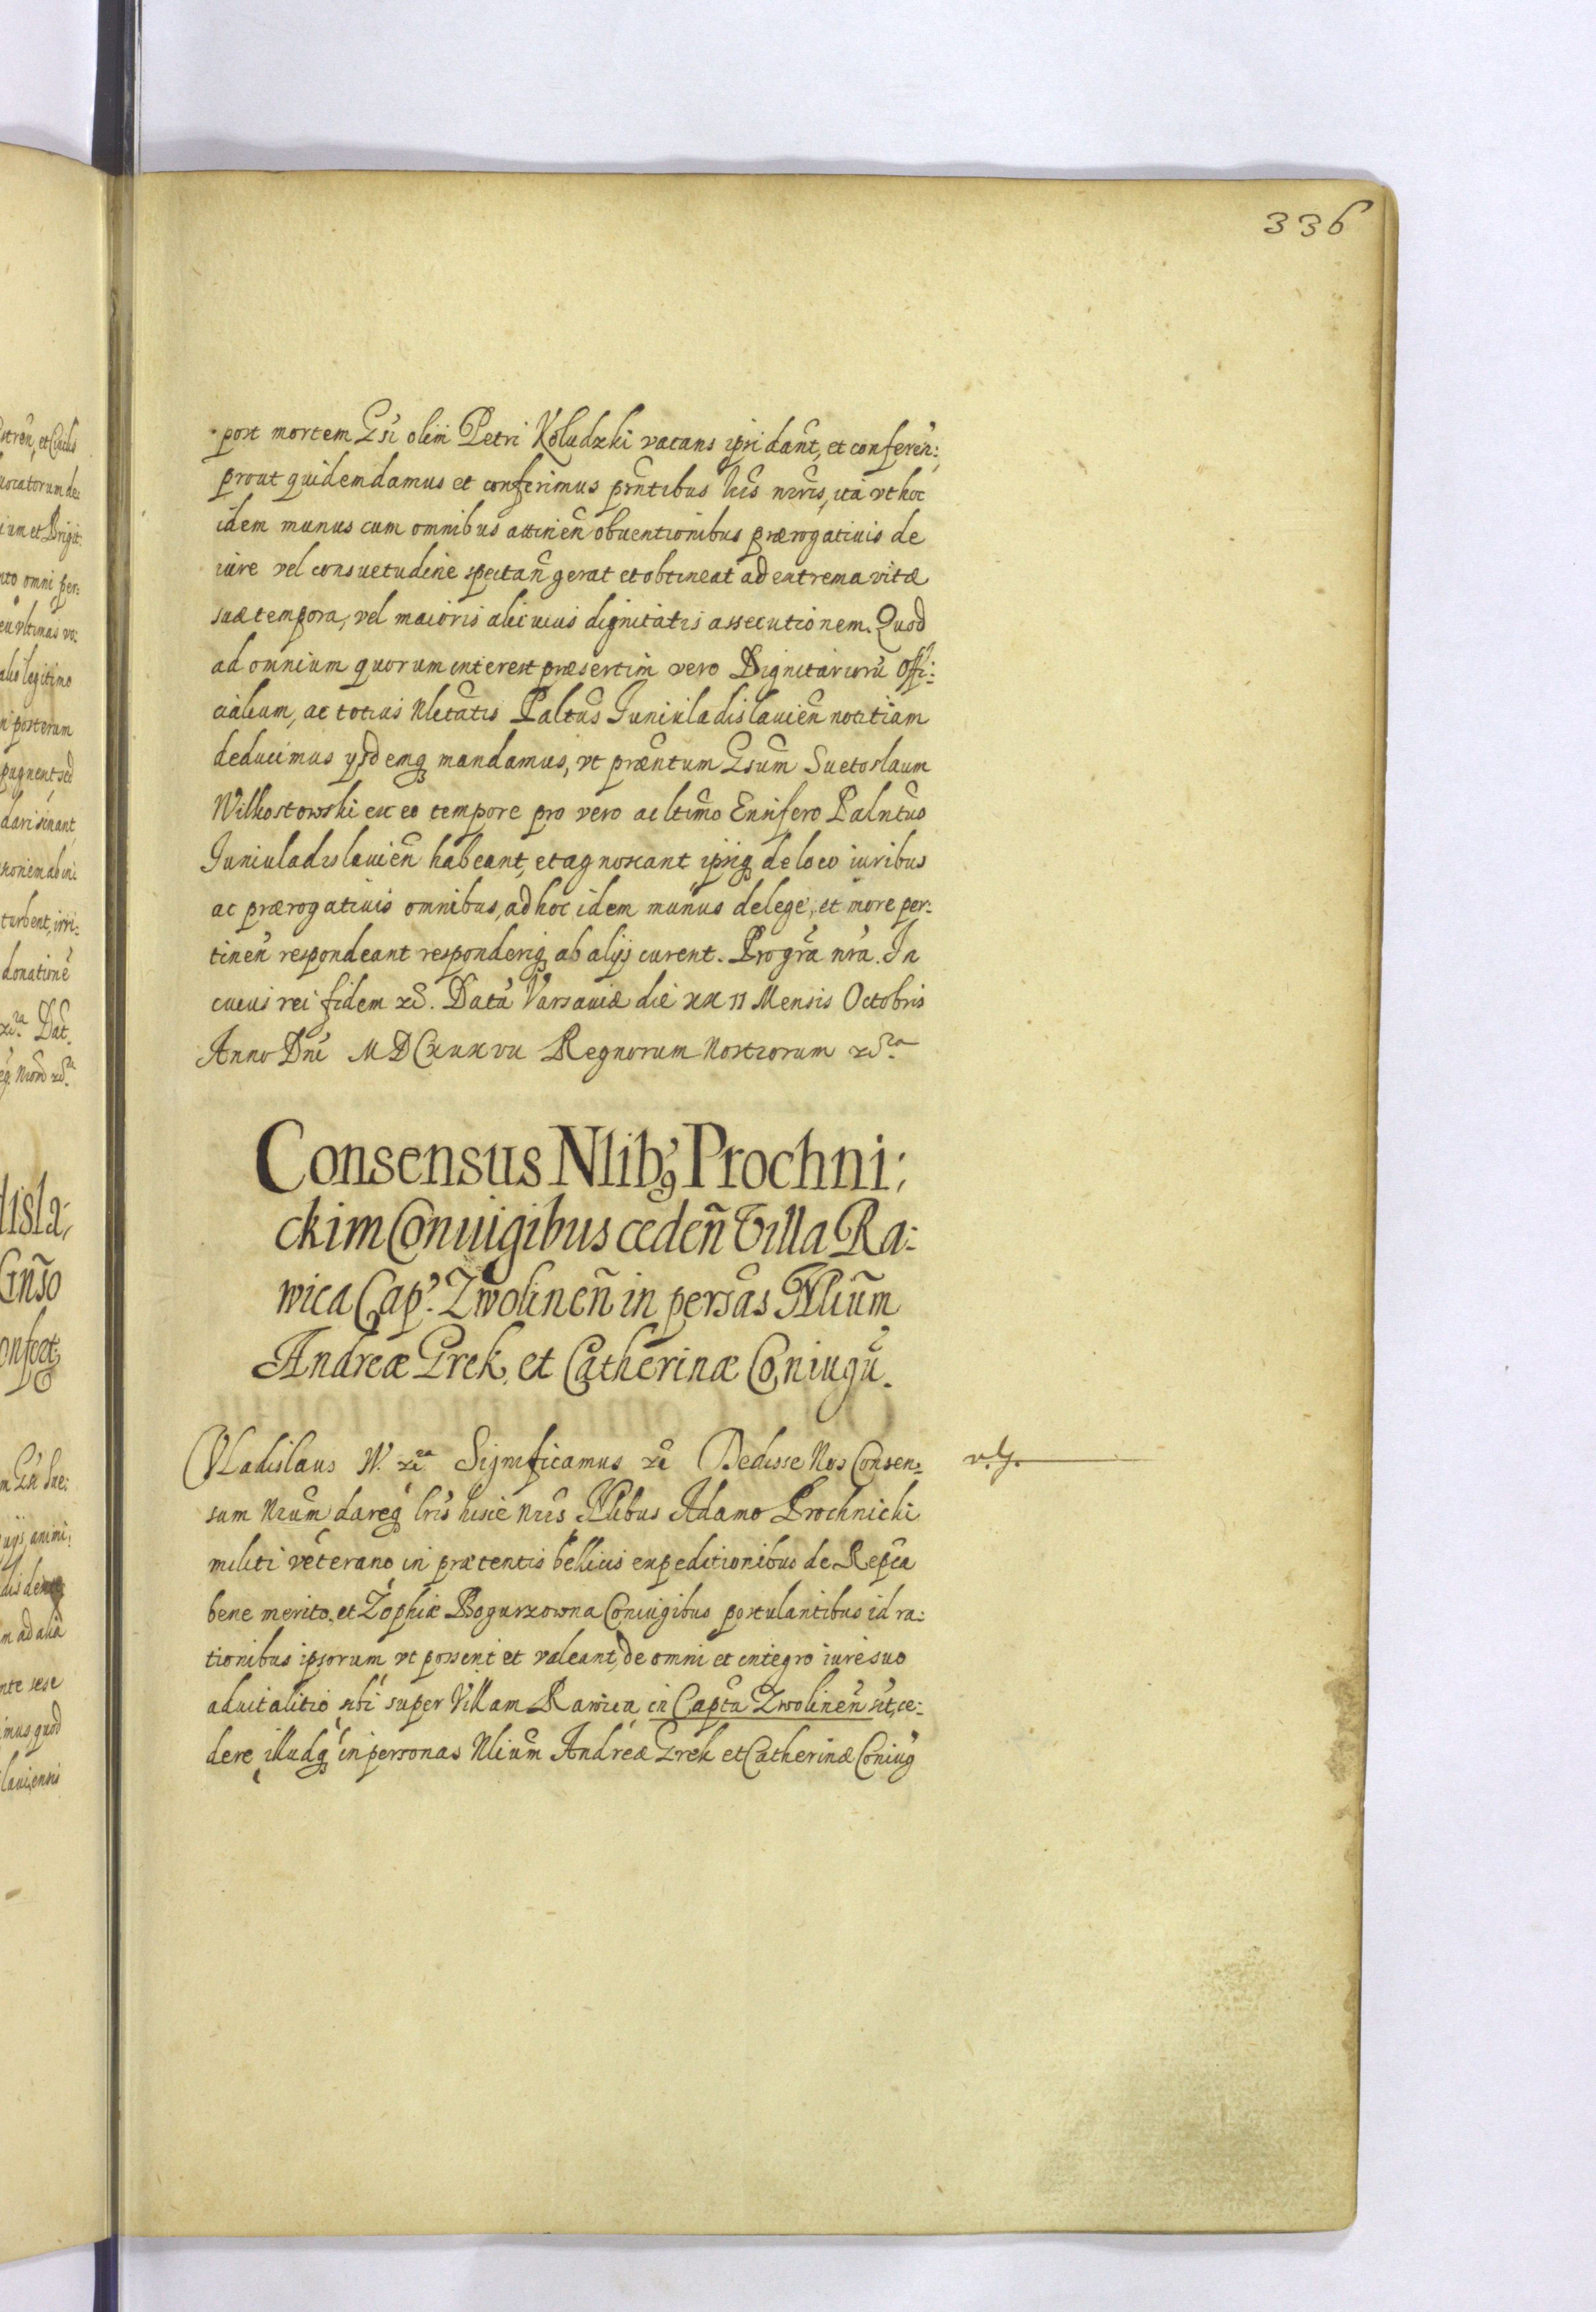 336
post mortem Gsi olim Petri Koludzki vacans ipsi dant, et conferen:
prout quidem damus et conferimus pntibus lris nris, ita vt hoc
idem munus cum omnibus attinen obuentionibus prærogatiuis de
iure vel consuetudine spectan gerat et obtineat ad extrema vitæ
suæ tempora, vel maioris alicuius dignitatis assecutionem. Quod
ad omnium quorum interest præsertim vero Dignitariorũ Offi:
cialium, ac totius Nlitatis Paltus Iuniuladislauien notitiam
deducimus ysdemq mandamus, vt præntum Gsum Suetoslaum
Wilkostowski ex eo tempore pro vero ac ltimo Ensifero Palntus
Iuniuladislauien habeant, et agnoscant ipsiq de loco iuribus
ac prærogatiuis omnibus, ad hoc idem munus de lege, et more per:
tinen respondeant responderiq ab alijs curent. Pro gra nra. In
cuius rei fidem &c. Datũ Varsauiæ die XX II Mensis Octobris
Anno Dni MDCxxxvii Regnorum Nostrorum &c
Consensus Nlibq Prochni:
ckim Coniugibus ceden Villa Ra:
wica Cap. Zwolinen in persas Nlium
Andreæ Grek, et Catherinæ Coniugũ.
Vladislaus IV. &c Significamus &c Dedisse Nos Consen:
v. g.
sum Nrum dareq lris hisce nris Nlibus Adamo Prochnicki
militi veterano in prætentis bellicis expeditionibus de Repca
bene merito, et Zophiæ Bogurzowna Coniugibus postulantibus id ra:
tionibus ipsorum vt possent et valeant, de omni et integro iure suo
aduitalitio sibi super Villam Rawica in Captu Zwolinen sit, ce:
dere illudq in personas Nlium Andreæ Grek et Catherinæ Coniug